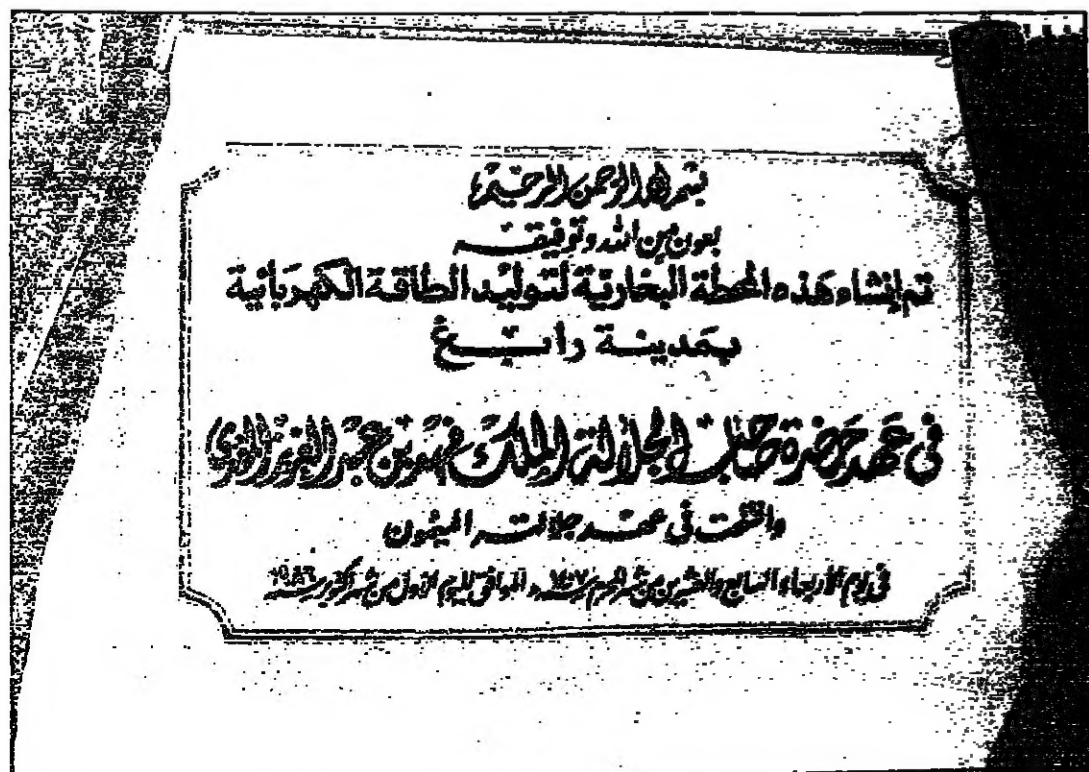 بسم الله الرحمن الرحيم
بعون من الله وتوفيقه
تم إنشاء هذه المحطة البخارية لتوليد الطاقة الكهربائية
بمدينة رابغ
في عهد حضرة صاحب الجلالة الملك فهد بن عبد العزيز
وافتتحت في عهد جلالته الميمون
في يوم الأربعاء السابع والعشرين من شهر محرم سنة ١٤٠٧ الموافق لليوم الأول من شهر أكتوبر سنة ١٩٨٦